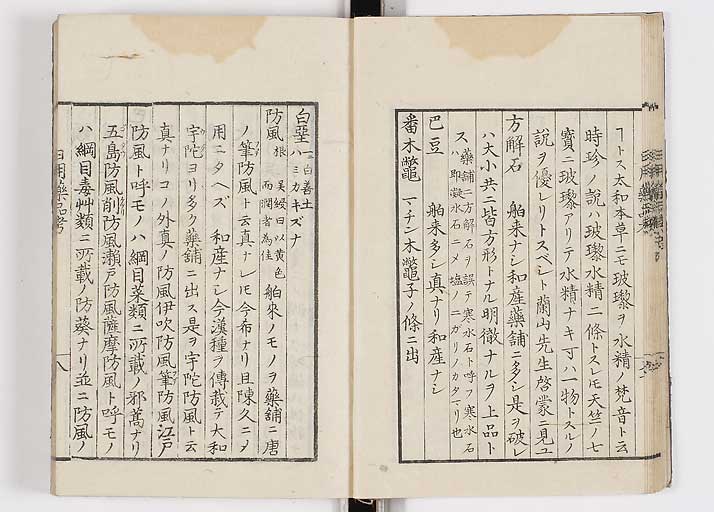 ヿトス太和本草ニモ玻璨ヲ水精ノ梵音ト云
時珍ノ説ハ玻璨水精二條トスレ𪜈天竺ノ七
寳ニ玻璨アリテ水精ナキ寸ハ一物トスルノ
説ヲ優レリトスベシト蘭山先生啓蒙ニ見ユ
方解石 舶来ナシ和産藥舗ニ多シ是ヲ破レ
ハ大小共ニ皆方形トナル明徹ナルヲ上品ト
ス 藥舗ニ方解石ヲ誤テ寒水石ト呼フ寒水石
ハ即凝水石ニメ塩ノニガリノカタマリ也
巴豆 舶来多シ真ナリ和産ナシ
番木鼈 マチン木鼈子ノ條ニ出
白堊 一ニ白善土
ハミカキズナ
防風 根 吴綬曰以黄色
而潤者為佳 舶來ノモノヲ藥舗ニ唐
ノ筆防風ト云真ナレ𪜈今希ナリ且陳久ニメ
用ニタヘズ 和産ナシ今漢種ヲ傳栽テ大和
宇陀ヨリ多ク藥舗ニ出ス是ヲ宇陀防風ト云
真ナリコノ外真ノ防風伊吹防風筆防風江戸
防風ト呼モノハ綱目菜類ニ所載ノ邪蒿ナリ
五島防風削防風瀬戸防風薩摩防風ト呼モノ
ハ綱目毒艸類ニ所載ノ防葵ナリ並ニ防風ノ
日用藥品考
八